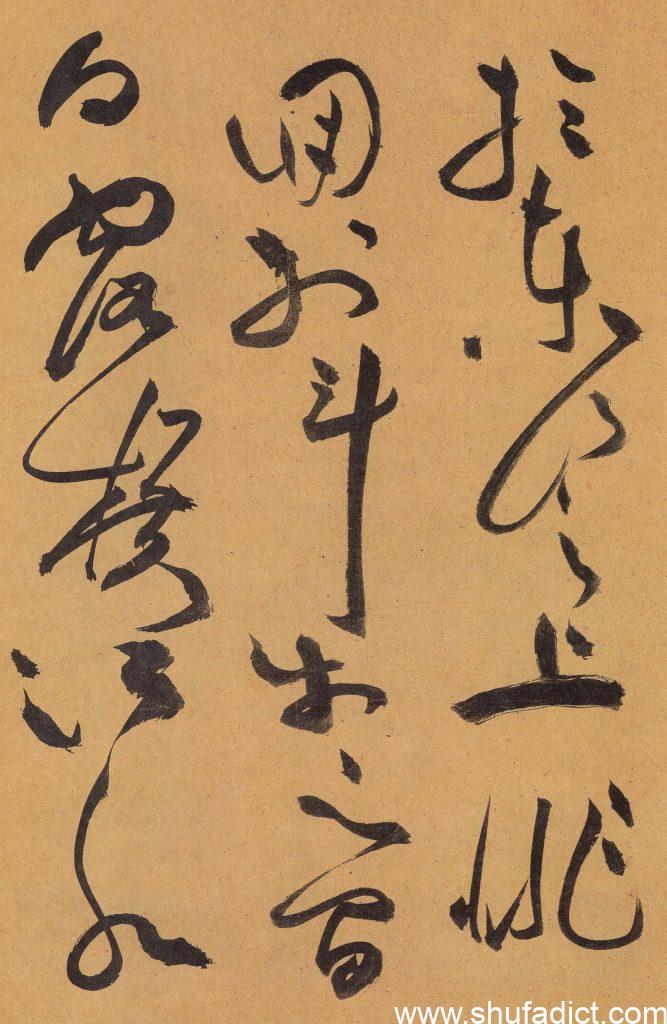 於東山之上徘
徊於斗牛之間
白露橫江水
www.shufadict.com